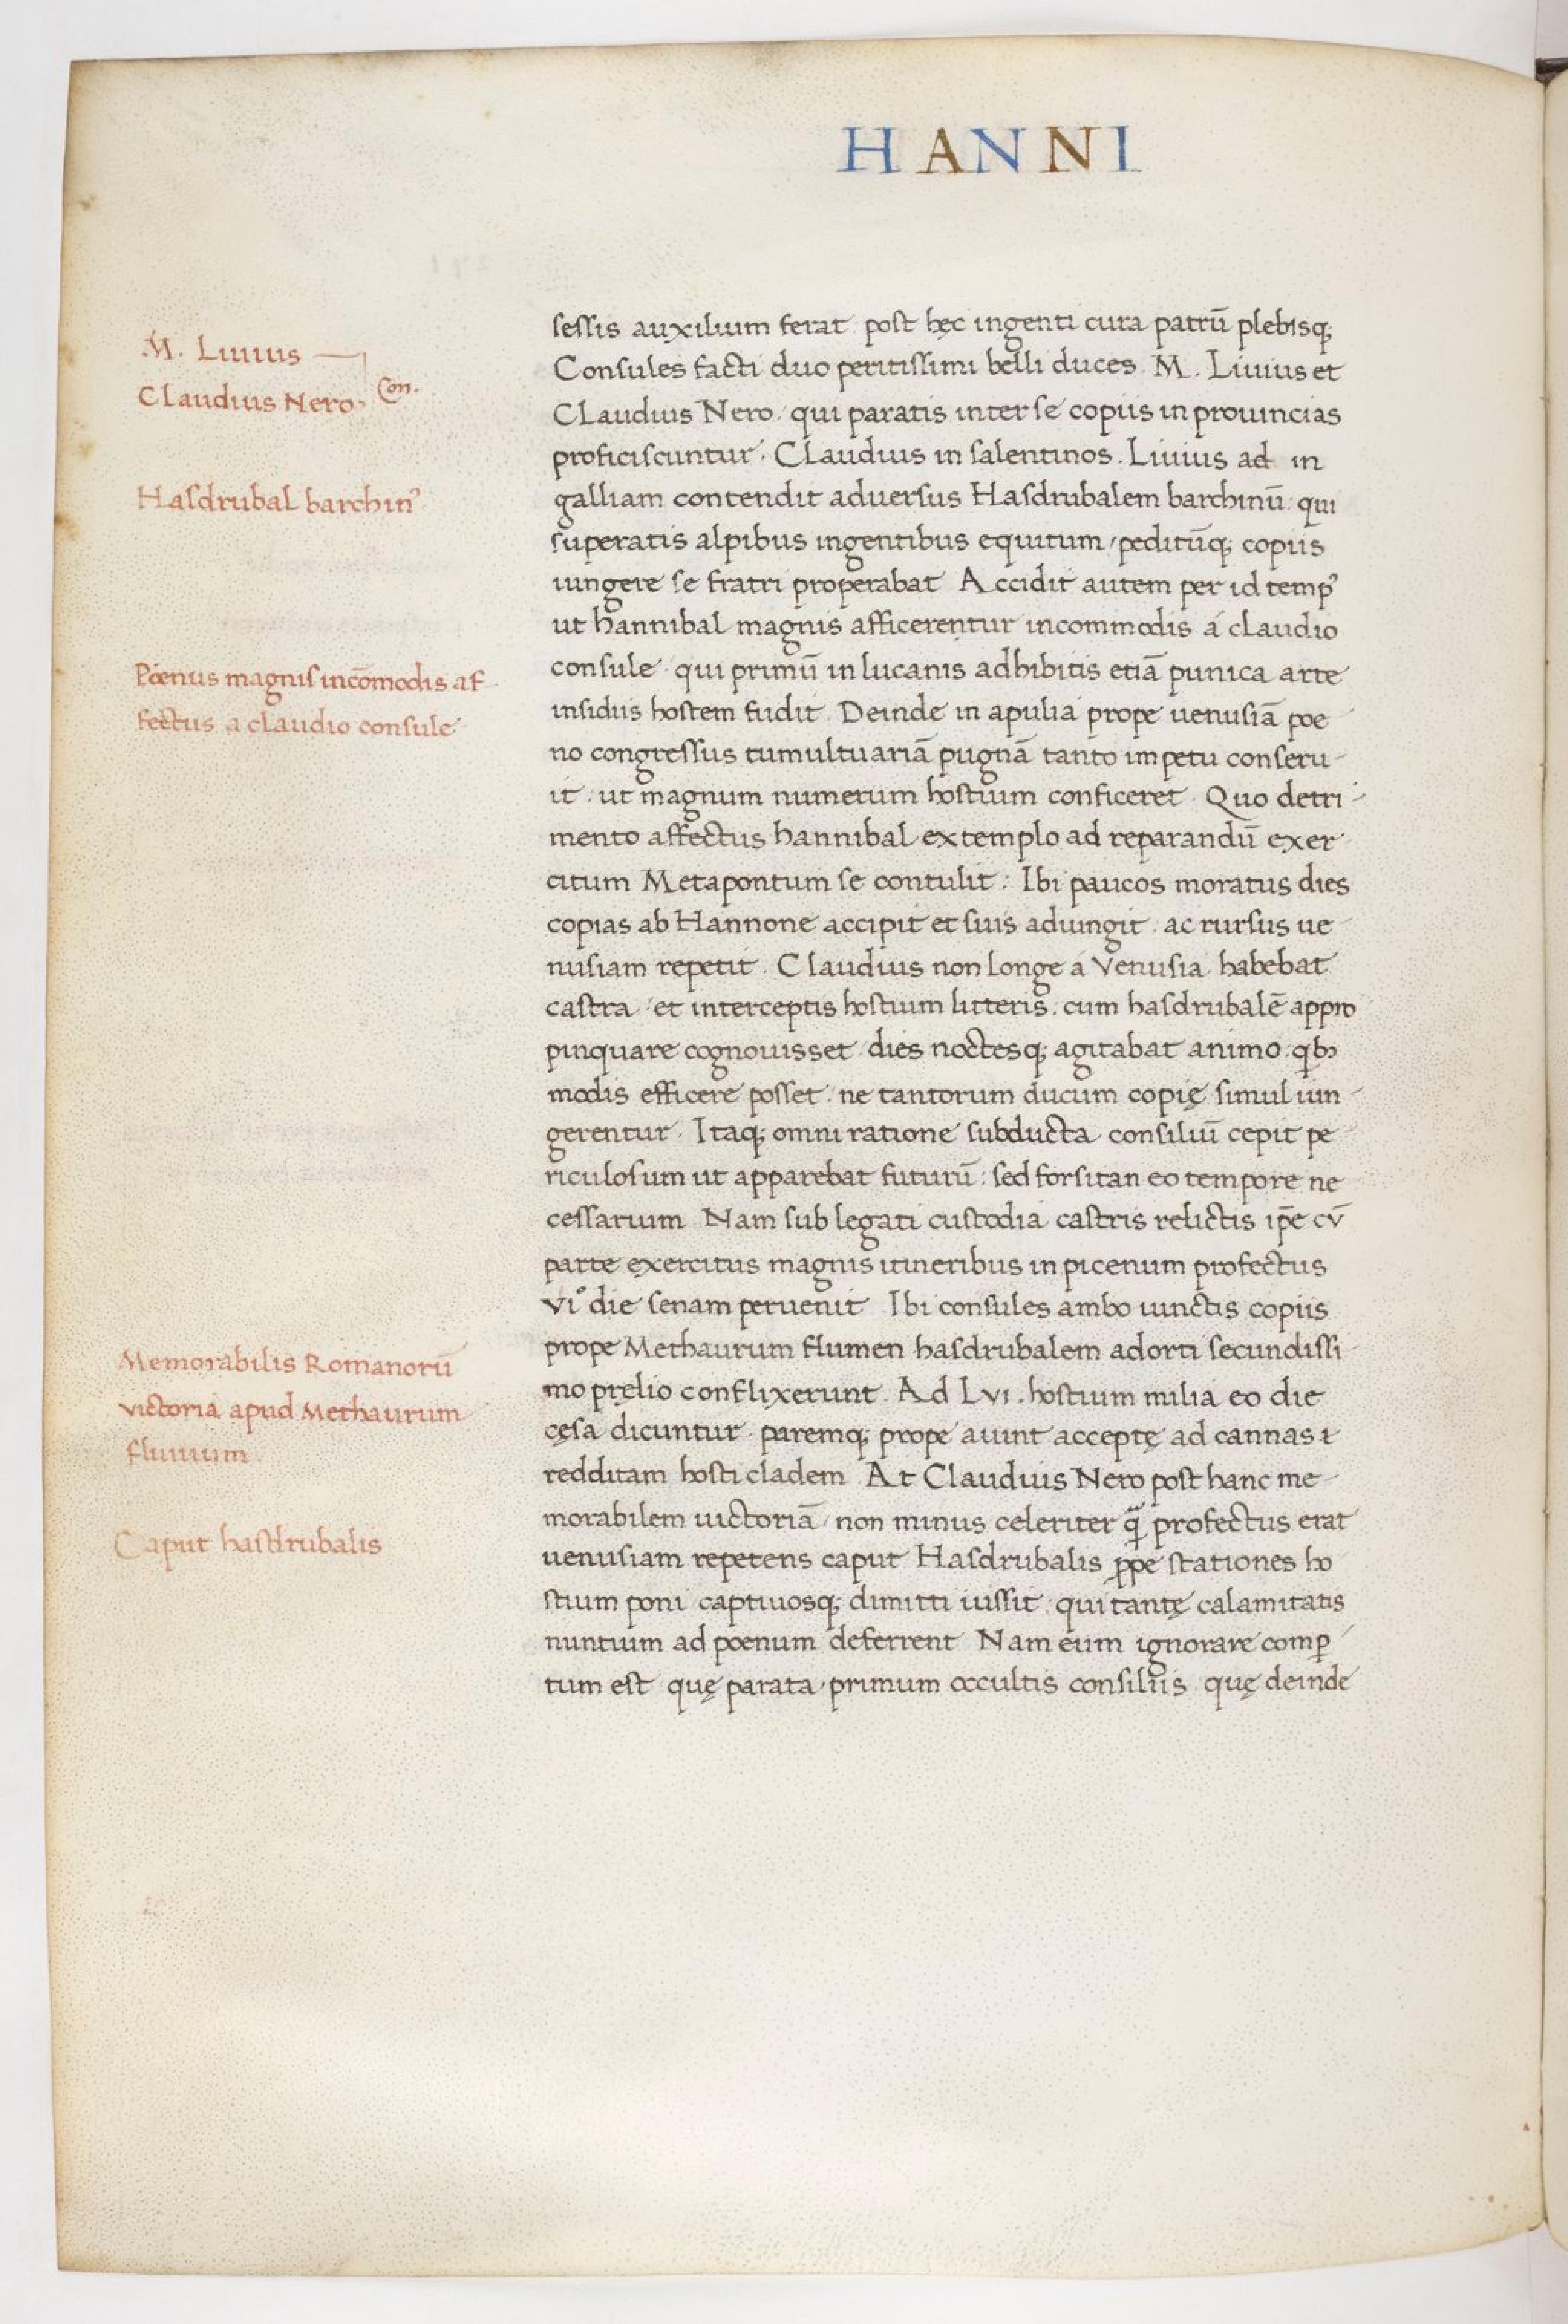 HANNI
sessis auxilium ferat. post hęc ingenti cura patrū plebisq;
Consules facti duo peritissimi belli duces M. Liuius et
Claudius Nero. qui paratis inter se copiis in prouincias
proficiscuntur. Claudius in salentinos. Liuius ad in
galliam contendit aduersus Hasdrubalem barchinū. qui
superatis alpibus ingentibus equitum, peditūq; copiis
iungere se fratri properabat Accidit autem per id tempꝰ
ut hannibal magnis afficerentur incommodis á claudio
consule. qui primū in lucanis adhibitis etiā punica arte
insidiis hostem fudit Deinde in apulia prope uenusiā poe
no congressus tumultuariā pugnā tanto impetu conseru-
it. ut magnum numerum hostium conficeret. Quo detri-
mento affectus hannibal extemplo ad reparandū exer
citum Metapontum se contulit: Ibi paucos moratus dies
copias ab Hannone accipit et suis adiungit. ac rursus ue
nusiam repetit. Claudius non longe á Venusia habebat
castra et interceptis hostium litteris. cum hasdrubalē appro
pinquare cognouisset dies noctesq; agitabat animo. qb3
modis efficere posset. ne tantorum ducum copię simul iun-
gerentur. Itaq; omni ratione subducta consiliū cepit pe
riculosum ut apparebat futurū: sed forsitan eo tempore ne
cessarium Nam sub legati custodia castris relictis ip̄e cv̄
parte exercitus magnis itineribus in picenum profectus
VIº die senam peruenit Ibi consules ambo iunctis copiis
prope Methaurum flumen hasdrubalem adorti secundissi-
mo pręlio conflixerunt. Ad LVI. hostium milia eo die
cęsa dicuntur. paremq; prope aiunt acceptę ad cannas ɩ
redditam hosti cladem At Claudius Nero post hanc me-
morabilem uictoriā, non minus celeriter q̄ profectus erat
uenusiam repetens caput Hasdrubalis ꝓpe stationes ho
stium poni captiuosq; dimitti iussit. qui tantę calamitatis
nuntium ad poenum deferrent Nam eum ignorare comꝑ
tum est quę parata. primum occultis consiliis quę deinde
M. Liuius
Claudius Nero. Con.
Hasdrubal barchinꝰ
Poenus magnis incōmodis af
fectus a claudio consule
Memorabilis Romanorū
victoria apud Methaurum
fluuium.
Caput hasdrubalis